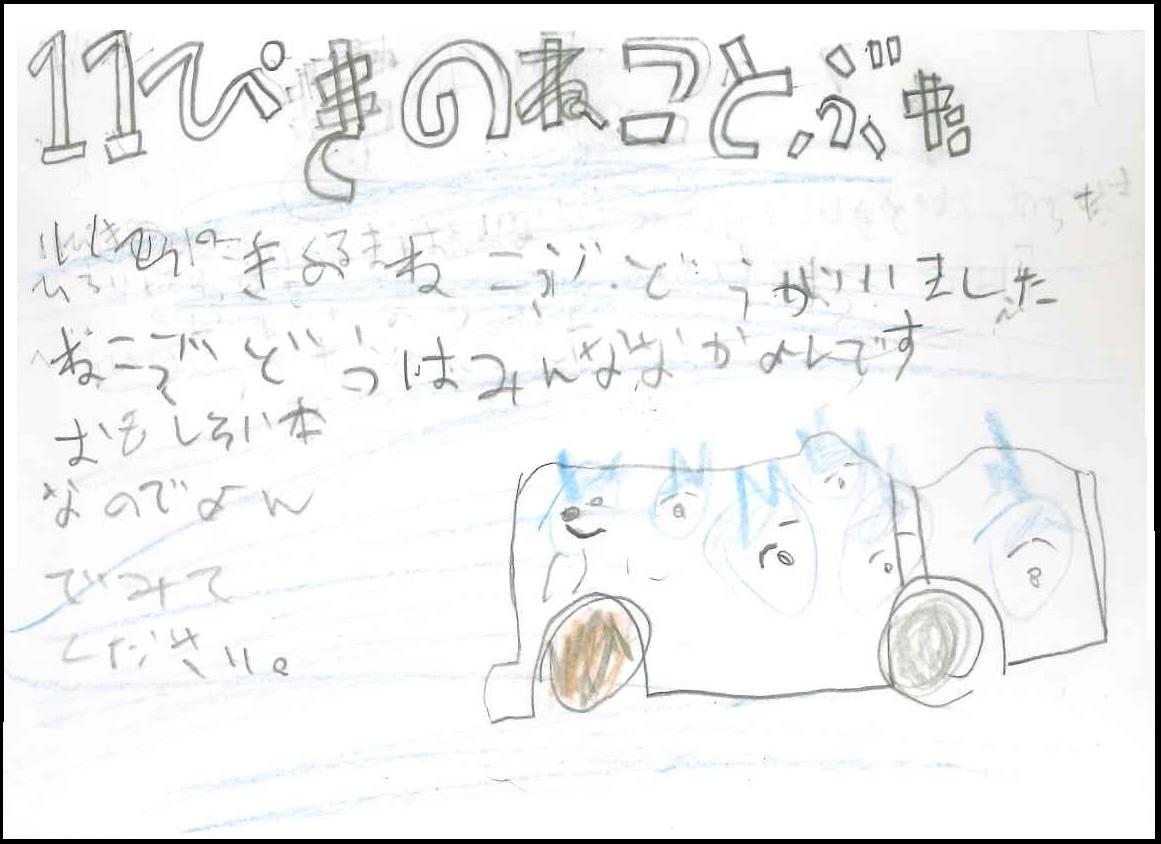 11ぴきのねことぶた
ねこぶどうがいました
ねこぶどうはみんななかよしです
おもしろい本
なのでよん
でみて
ください。